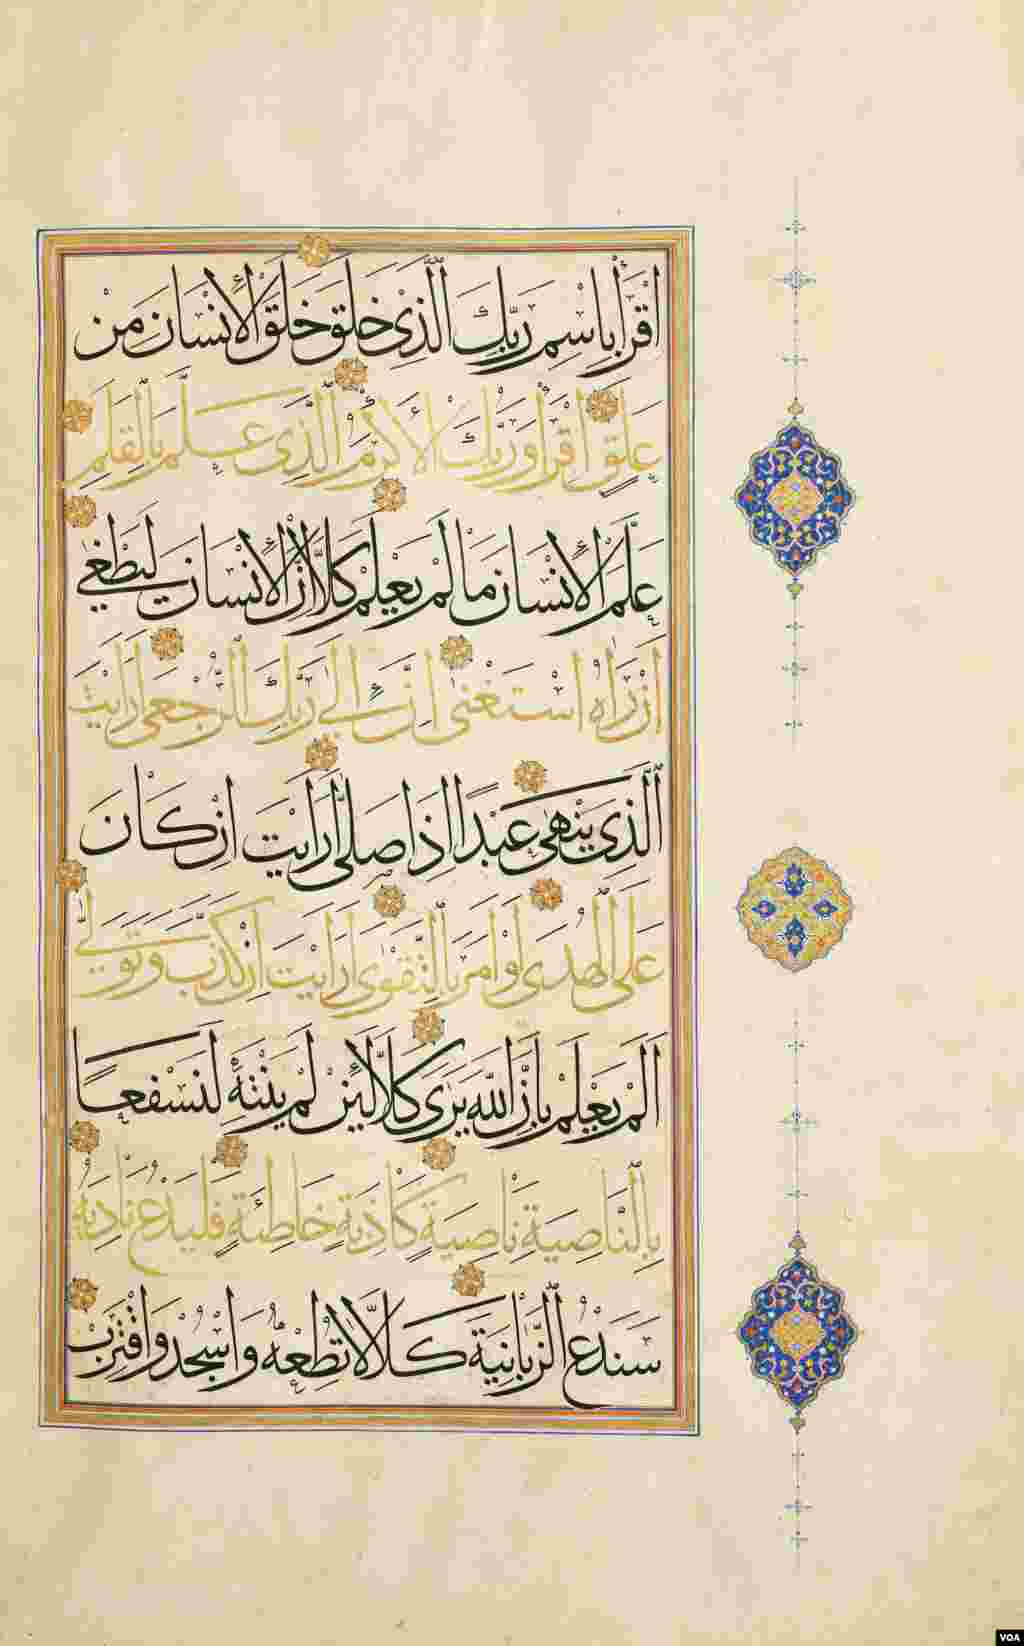 اقْرَأْ بِاسْمِ رَبِّكَ الَّذِي خَلَقَ خَلَقَ الْإِنْسَانَ مِنْ
عَلَقٍ اقْرَأْ وَرَبُّكَ الْأَكْرَمُ الَّذِي عَلَّمَ بِالْقَلَمِ
عَلَّمَ الْإِنْسَانَ مَا لَمْ يَعْلَمْ كَلَّا إِنَّ الْإِنْسَانَ لَيَطْغَى
اَنْ رَاٰهُ اسْتَغْنَى اِنَّ اِلَى رَبِّكَ الرُّجْعَى اَرَاَيْتَ
الَّذِي يَنْهَى عَبْدًا اِذَا صَلَّى اَرَاَيْتَ اِنْ كَانَ
عَلَى الْهُدَى اَوْ اَمَرَ بِالتَّقْوَى اَرَاَيْتَ اِنْ كَذَّبَ وَتَوَلَّى
اَلَمْ يَعْلَمْ بِاَنَّ اللَّهَ يَرَى كَلَّا لَئِنْ لَمْ يَنْتَهِ لَنَسْفَعًا
بِالنَّاصِيَةِ نَاصِيَةٍ كَاذِبَةٍ خَاطِئَةٍ فَلْيَدْعُ نَادِيَهُ
سَنَدْعُ الزَّبَانِيَةَ كَلَّا لَا تُطِعْهُ وَاسْجُدْ وَاقْتَرِبْ
VOA